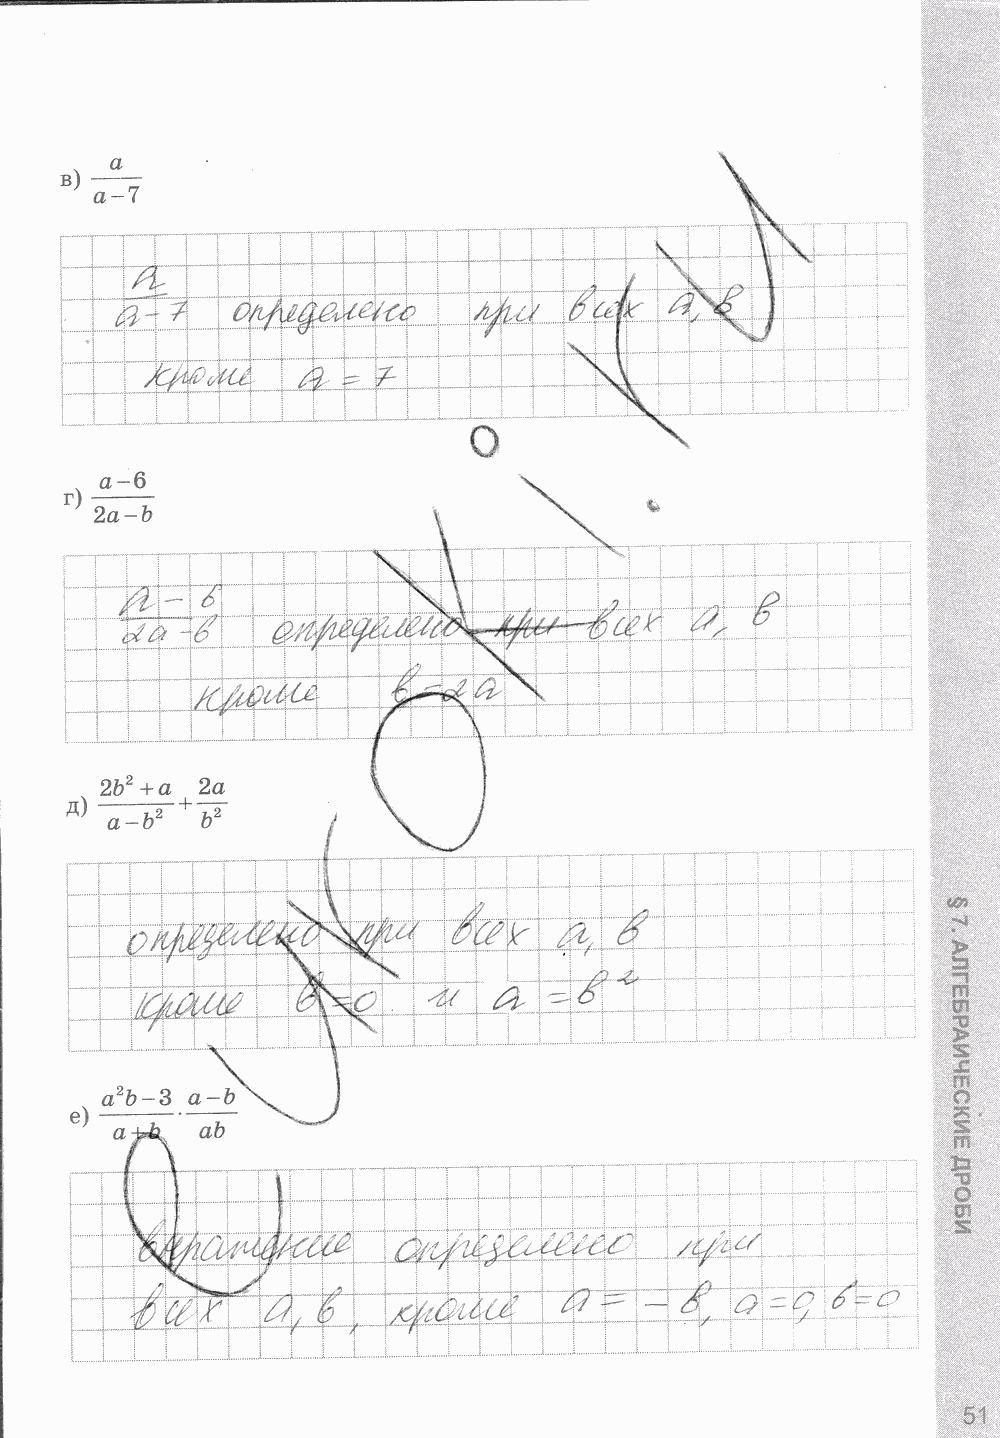 в) a/(a−7)
a/(a−7) определено при всех a, b
кроме a = 7
г) (a−6)/(2a−b)
(a−6)/(2a−b) определено при всех a, b
кроме b=2a
д) (2b²+a)/(a−b²) + 2a/b²
определено при всех a, b
кроме b=0 и a=b²
е) (a²b−3)/(a+b) · (a−b)/(ab)
выражение определено при
всех a, b, кроме a= −b, a=0, b=0
§ 7. АЛГЕБРАИЧЕСКИЕ ДРОБИ
51
euroki.ru